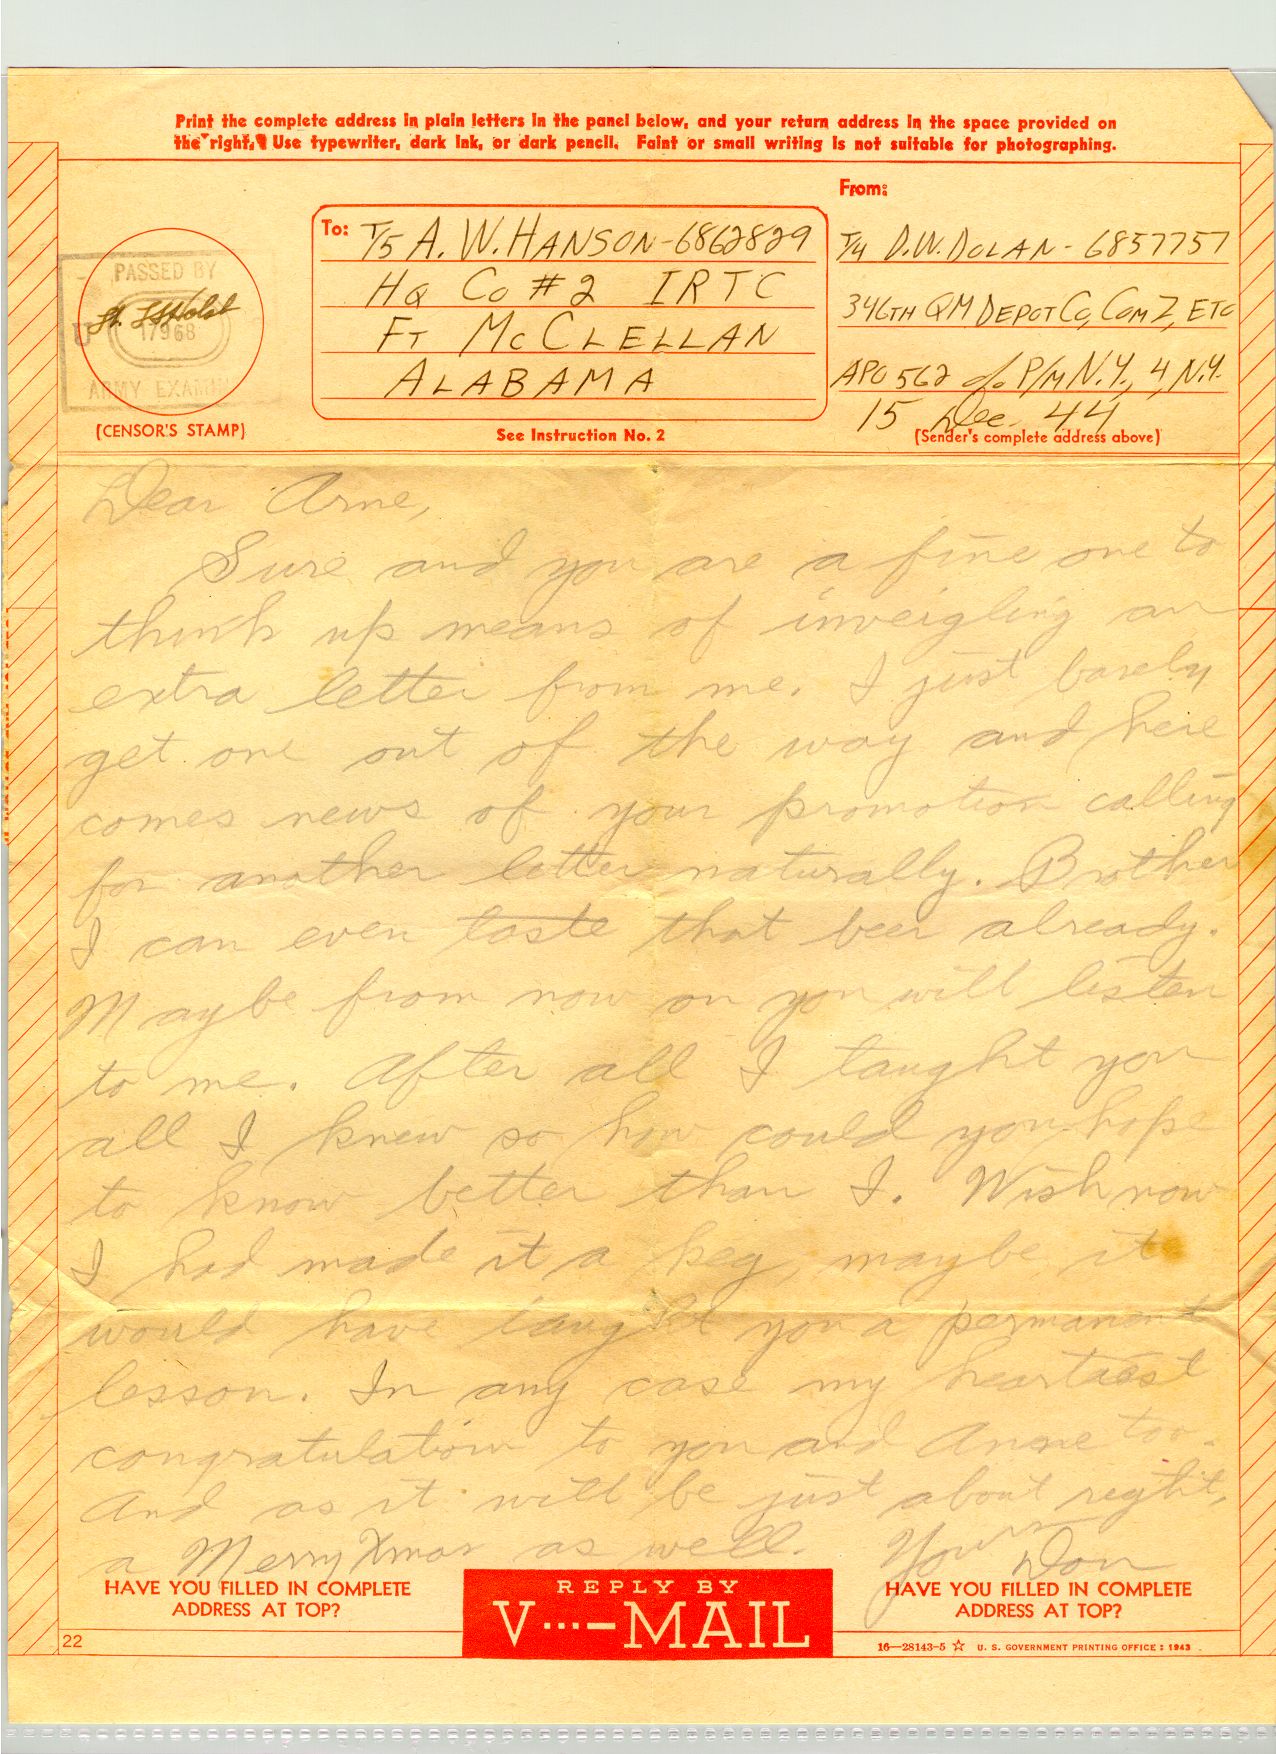 Print the complete address in plain letters in the panel below, and your return address in the space provided on
the right. Use typewriter, dark ink, or dark pencil. Faint or small writing is not suitable for photographing.
PASSED BY
17968
ARMY EXAMIN
(CENSOR'S STAMP)
To: T/5 A. W. HANSON-6862829
HQ CO #2 IRTC
FT MCCLELLAN
ALABAMA
See Instruction No. 2
From:
T/4 D.W. DOLAN - 6857757
346TH QM DEPOT CO, COM Z, ETO
APO 562 c/o P/M N.Y., 4, N.Y.
15 Dec. 44
(Sender's complete address above)
Dear Arne,
Sure and you are a fine one to
think up means of inveigling an
extra letter from me. I just barely
get one out of the way and here
comes news of your promotion calling
for another letter naturally. Brother
I can even taste that beer already.
Maybe from now on you will listen
to me. After all I taught you
all I knew so how could you hope
to know better than I. Wish now
I had made it a keg, maybe it
would have taught you a permanent
lesson. In any case my heartiest
congratulation to you and Anne too.
And as it will be just about right,
a Merry Xmas as well. Yours Don
HAVE YOU FILLED IN COMPLETE
ADDRESS AT TOP?
REPLY BY
V···—MAIL
HAVE YOU FILLED IN COMPLETE
ADDRESS AT TOP?
22
16—28143-5 ☆ U. S. GOVERNMENT PRINTING OFFICE : 1943